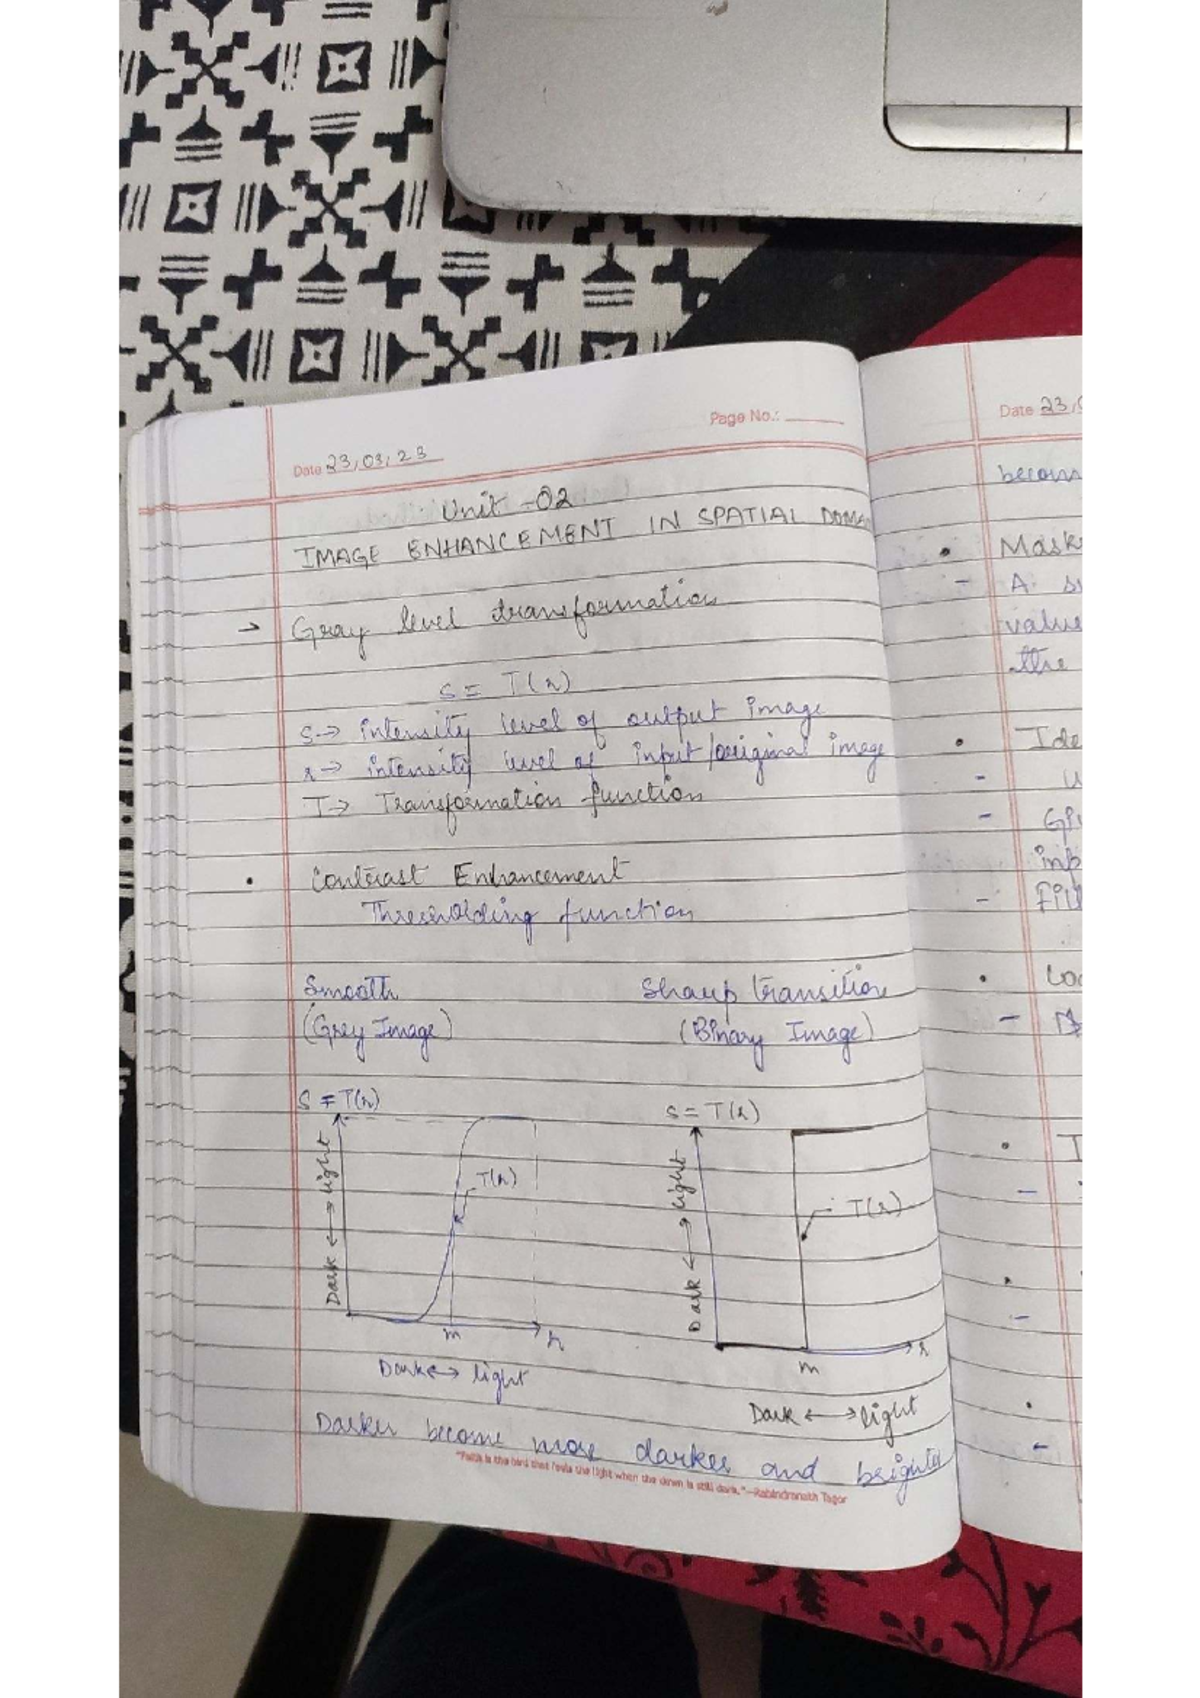 Page No.:
Date 23,03,23
Unit -02
IMAGE ENHANCEMENT IN SPATIAL DOMA
→ Gray level transformation
S = T(r)
S→ intensity level of output image
r→ intensity level of input/original image
T→ Transformation function
• Contrast Enhancement
Thresholding function
Smooth Sharp transition
(Grey Image) (Binary Image)
S = T(r) S = T(r)
Dark ↔ light Dark ↔ light
T(r) T(r)
m r m r
Dark ↔ light Dark ↔ light
Darker become more darker and brighter
"Faith is the bird that feels the light when the dawn is still dark."—Rabindranath Tagor
Date 23,0
becom
• Mask
- A s
value
the
• Ide
- U
-
inp
- Fil
• Loc